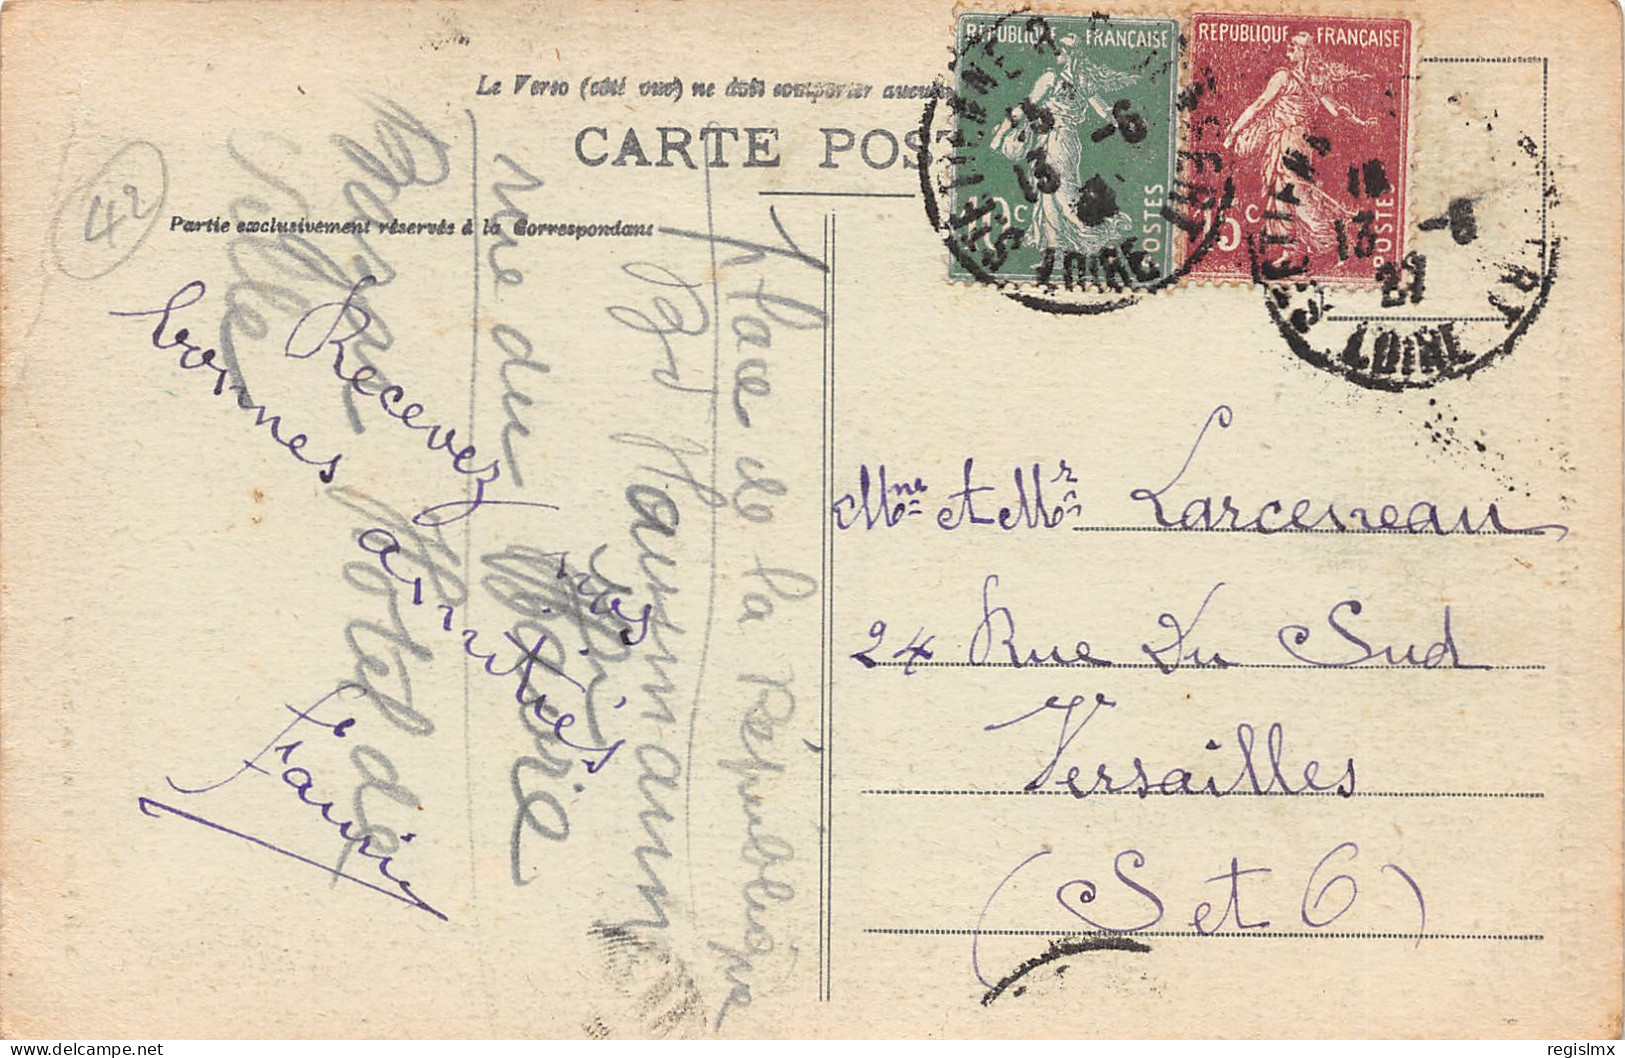 Le Verso (côté vue) ne doit comporter aucune
CARTE POS
Partie exclusivement réservée à la Correspondance
42
RÉPUBLIQUE FRANÇAISE
10c
POSTES
RÉPUBLIQUE FRANÇAISE
15c
POSTES
ST ETIENNE
13 -6
LOIRE
ST ETIENNE
13 -6
27
LOIRE
Recevez mes
bonnes amitiés
Place de la République
Bd Haussmann
rue du
Hotel de
Ville
Mme et Mr Larceneau
24 Rue Du Sud
Versailles
(S et O)
delcampe.net
regislmx